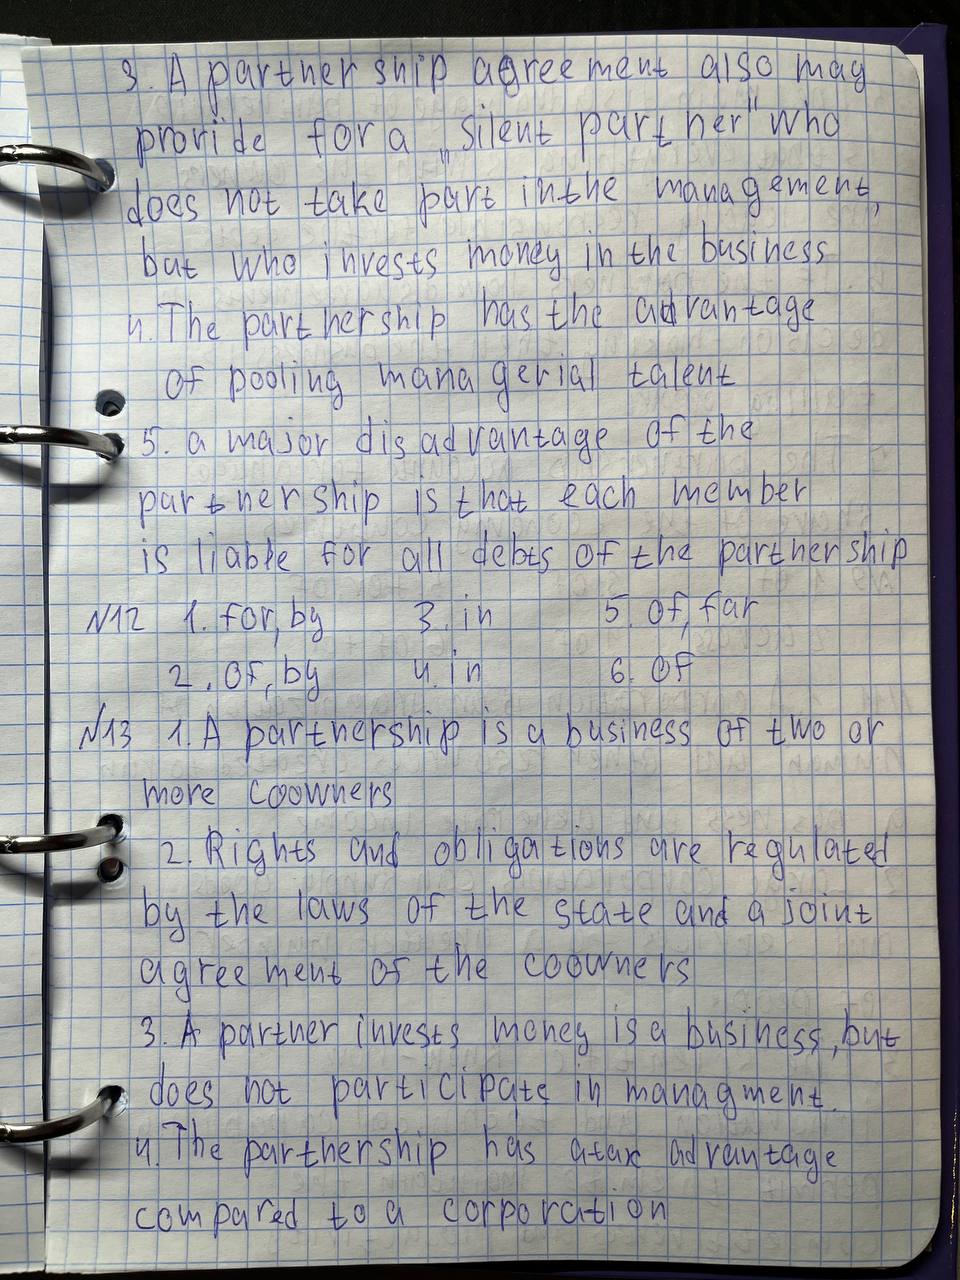 3. A partnership agreement also may
provide for a „silent partner" who
does not take part in the management,
but who invests money in the business
4. The partnership has the advantage
of pooling managerial talent
5. a major disadvantage of the
partnership is that each member
is liable for all debts of the partnership
N12 1. for, by 3. in 5. of, far
2. of, by 4. in 6. of
N13 1. A partnership is a business of two or
more coowners
2. Rights and obligations are regulated
by the laws of the state and a joint
agreement of the coowners
3. A partner invests money is a business, but
does not participate in managment.
4. The partnership has a tax advantage
compared to a corporation